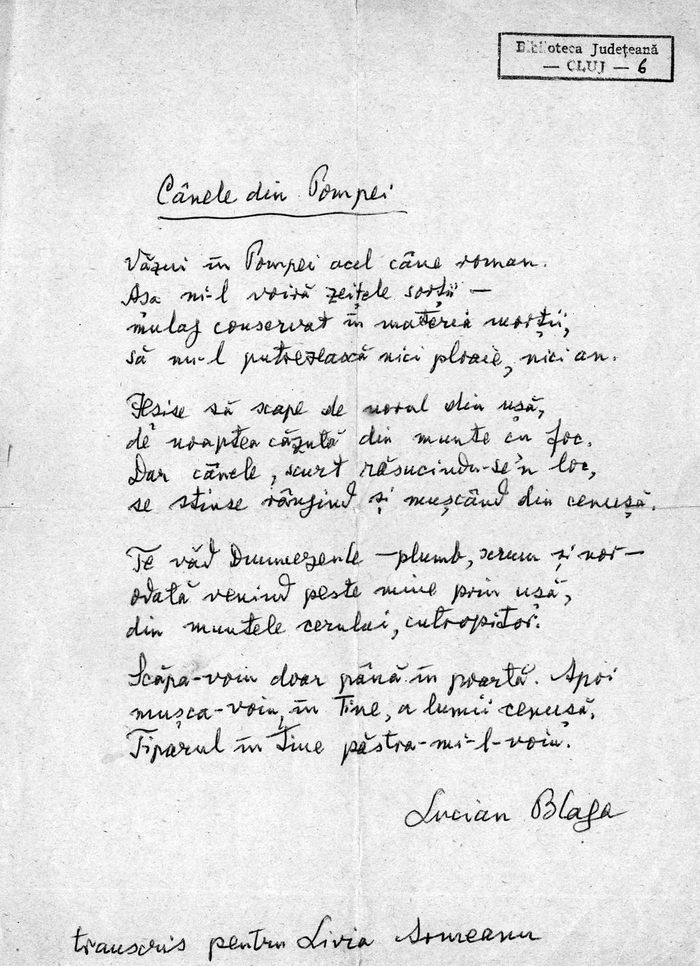 Biblioteca Județeană
— CLUJ — 6
Cânele din Pompei
Văzui în Pompei acel câne roman.
Așa mi-l voiră zeițele sorții —
mulaj conservat în materia morții,
să nu-l putrezească nici ploaie, nici an.
Ieșise să scape de norul din ușă,
de noaptea căzută din munte cu foc.
Dar cânele, scurt răsucindu-se'n loc,
se stinse rânjind și mușcând din cenușă.
Te văd Dumnezeule — plumb, scrum și nor —
odată venind peste mine prin ușă,
din muntele cerului, cutropitor.
Scăpa-voiu doar până în poartă. Apoi
mușca-voiu, în Tine, a lumii cenușă.
Tiparul în Tine păstra-mi-l-voiu.
Lucian Blaga
transcris pentru Livia Armeanu